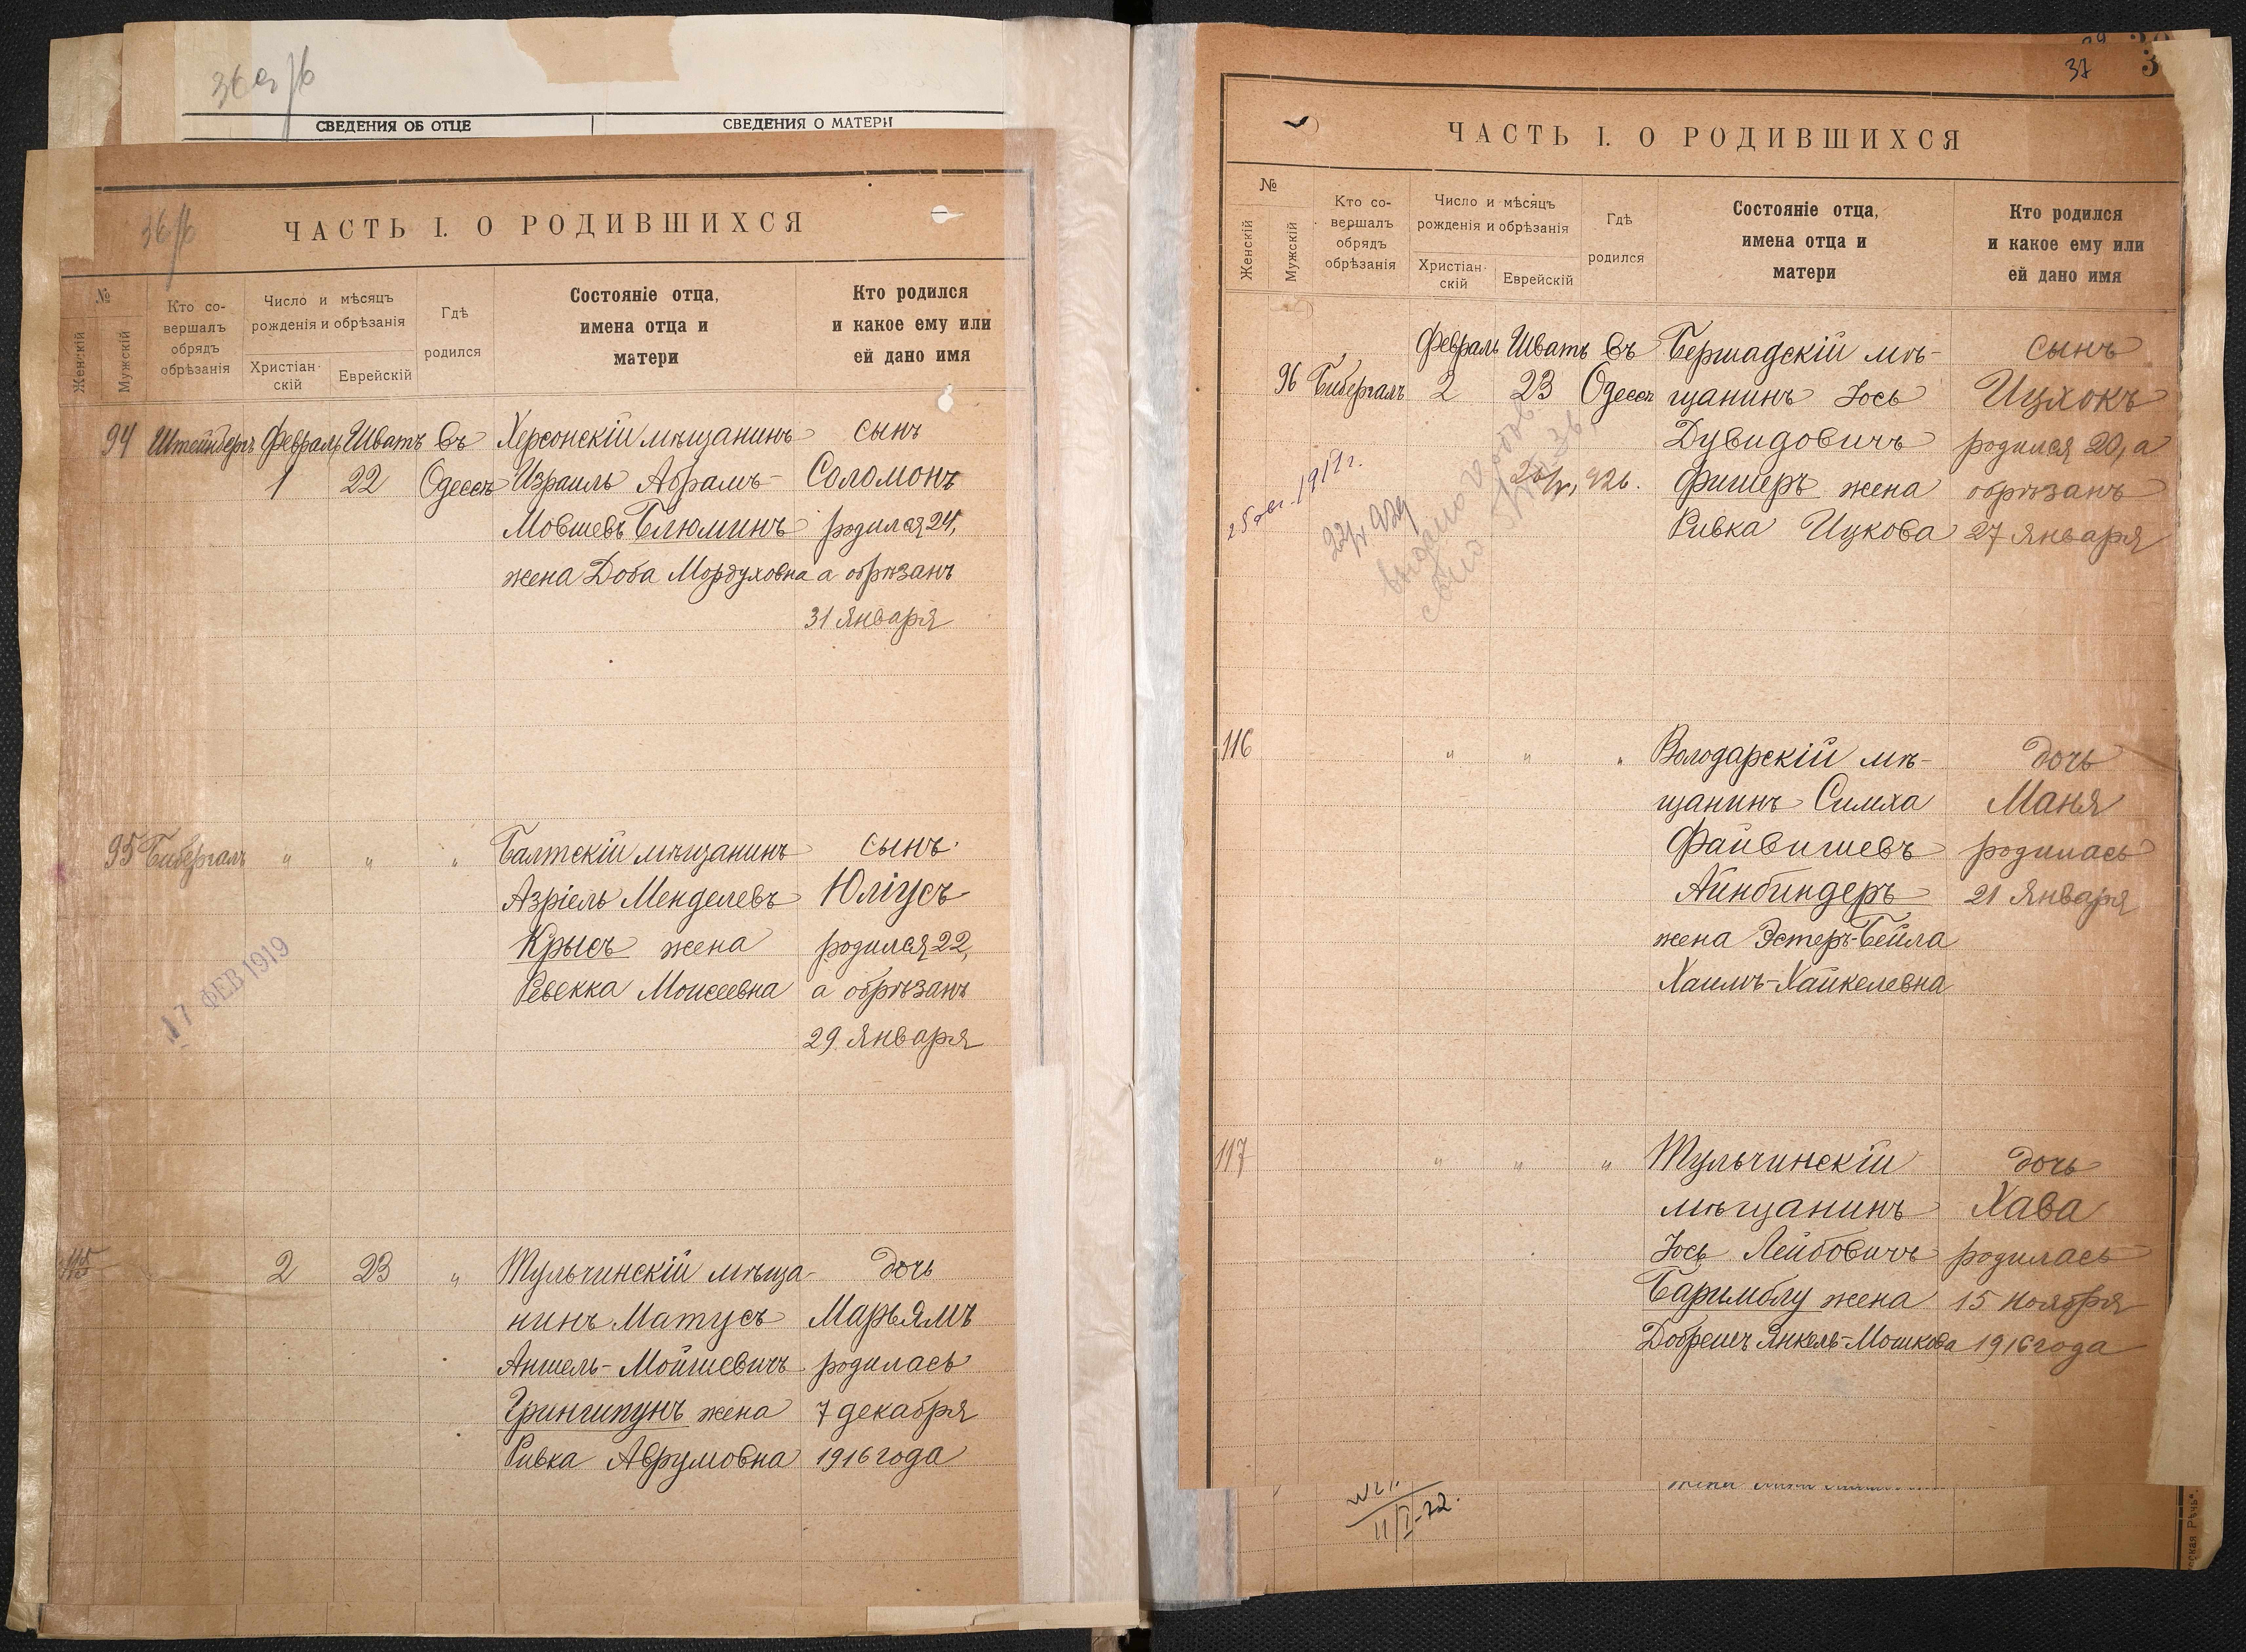 36 об
СВЕДЕНИЯ ОБ ОТЦЕ
СВЕДЕНИЯ О МАТЕРИ
36 об
ЧАСТЬ I. О РОДИВШИХСЯ
№
Женскій
Мужскій
Кто со-
вершалъ
обрядъ
обрѣзанія
Число и мѣсяцъ
рожденія и обрѣзанія
Христіан-
скій
Еврейскій
Гдѣ
родился
Состояніе отца,
имена отца и
матери
Кто родился
и какое ему или
ей дано имя
94 Штейнбергъ Февраль Шватъ Въ Херсонскій мѣщанинъ сынъ
1 22 Одессѣ Израиль Абрамъ- Соломонъ
Мовшевъ Блюминъ родился 24,
жена Доба Мордуховна а обрѣзанъ
31 января
95 Бибергалъ " " " Балтскій мѣщанинъ сынъ
Азріель Менделевъ Юліусъ
Крысъ жена родился 22,
Ревекка Моисеевна а обрѣзанъ
29 января
17 ФЕВ 1919
115 2 23 " Тульчинскій мѣща- дочь
нинъ Матусъ Марьямъ
Аншель-Мойшевичъ родилась
Грингшпунъ жена 7 декабря
Ривка Аврумовна 1916 года
37
ЧАСТЬ I. О РОДИВШИХСЯ
№
Женскій
Мужскій
Кто со-
вершалъ
обрядъ
обрѣзанія
Число и мѣсяцъ
рожденія и обрѣзанія
Христіан-
скій
Еврейскій
Гдѣ
родился
Состояніе отца,
имена отца и
матери
Кто родился
и какое ему или
ей дано имя
Февраль Шватъ Въ Бершадскій мѣ- сынъ
96 Бибергалъ 2 23 Одессѣ щанинъ Іось Ицхокъ
Дувидовичъ родился 20, а
Фишеръ жена обрѣзанъ
Ривка Ицкова 27 января
116 " " " Володарскій мѣ- дочь
щанинъ Симха Маня
Файвишевъ родилась
Айнбиндеръ 21 января
жена Эстеръ-Бейла
Хаимъ-Хайкелевна
117 " " " Тульчинскій дочь
мѣщанинъ Хава
Іось Лейбовичъ родилась
Баримблу жена 15 ноября
Добрешъ Янкель-Мошкова 1916 года
11/I-22.